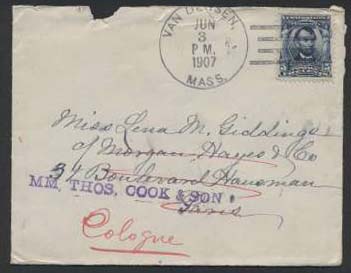 VAN DEUSEN,
JUN
3
P M.
1907
MASS.
Miss Lena M. Giddings
of Morgan Hayes & Co
31 Boulevard Hausman
MM, THOS, COOK & SON
Paris
Cologne